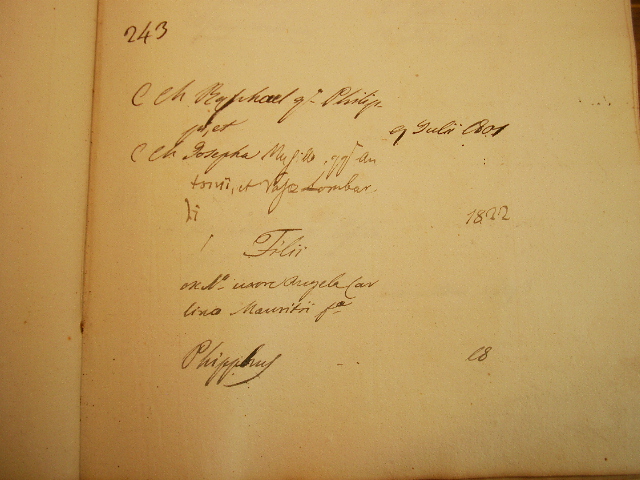 243
C Ch Raphael qm Philip-
pi, et 9 Julii 1801
C Ch Josepha An
tonii, et Lombar
di 1822
1 Filii
ex Na uxore Angela Car
lino Mauritii fa
Phippus 18